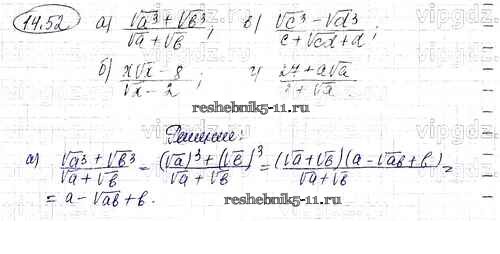 14.52 а) (√a³ + √b³)/(√a + √b); в) (√c³ − √d³)/(c + √cd + d);
б) (x√x − 8)/(√x − 2); г) (27 + a√a)/(3 + √a)
reshebnik5-11.ru
Решение:
а) (√a³ + √b³)/(√a + √b) = ((√a)³ + (√b)³)/(√a + √b) = ((√a + √b)(a − √ab + b))/(√a + √b) =
= a − √ab + b.
reshebnik5-11.ru
vipgdz.com